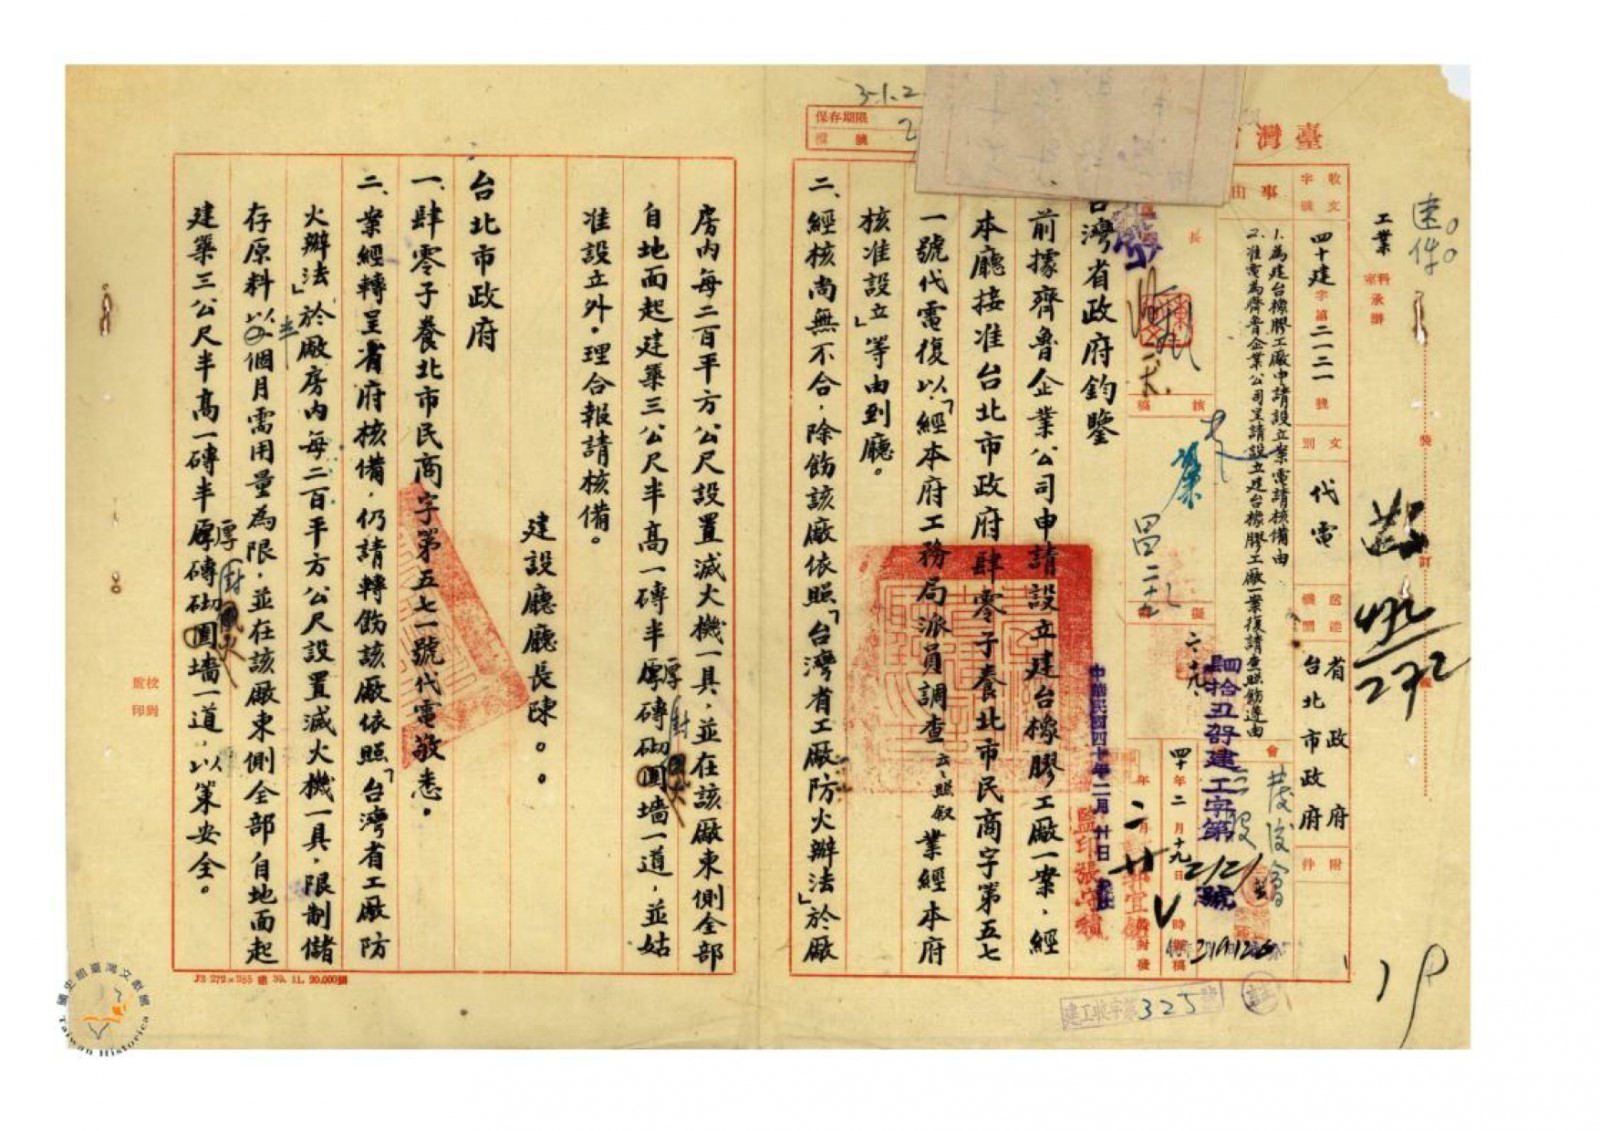 速件
工業
科室承辦
裝
訂
272
臺灣
收文字號
四十建字第二一二一號
文別
代電
送達機關
省政府
台北市政府
附件
事由
1.為建台橡膠工廠申請設立案電請核備由
2.准電為齊魯企業公司呈請設立建台橡膠工廠一案復請查照飭遵由
會
四拾丑晧建工字第2121號
四十年二月十九日
時擬稿
中華民國四十年二月廿日
監印張
時封發
長
核稿
擬稿
保存期限
檔號
31.2
台灣省政府鈞鑒
前據齊魯企業公司申請設立建台橡膠工廠一案,經
本廳接准台北市政府肆零子養北市民商字第五七
一號代電復以「經本府工務局派員調查云云照叙業經本府
核准設立」等由到廳。
二、經核尚無不合,除飭該廠依照「台灣省工廠防火辦法」於廠
房内每二百平方公尺設置滅火機一具,並在該廠東側全部
自地面起建築三公尺半高一磚半厚磚砌封火墻一道,並姑
准設立外,理合報請核備。
建設廳廳長陳。。
台北市政府
一、肆零子養北市民商字第五七一號代電敬悉。
二、案經轉呈省府核備,仍請轉飭該廠依照「台灣省工廠防
火辦法」於廠房内每二百平方公尺設置滅火機一具,限制儲
存原料以半個月需用量為限,並在該廠東側全部自地面起
建築三公尺半高一磚半厚磚砌封火墻一道,以策安全。
校對
監印
J3 272×385 39. 11. 20.000
建工收字第325號
國史館臺灣文獻館
Taiwan Historica